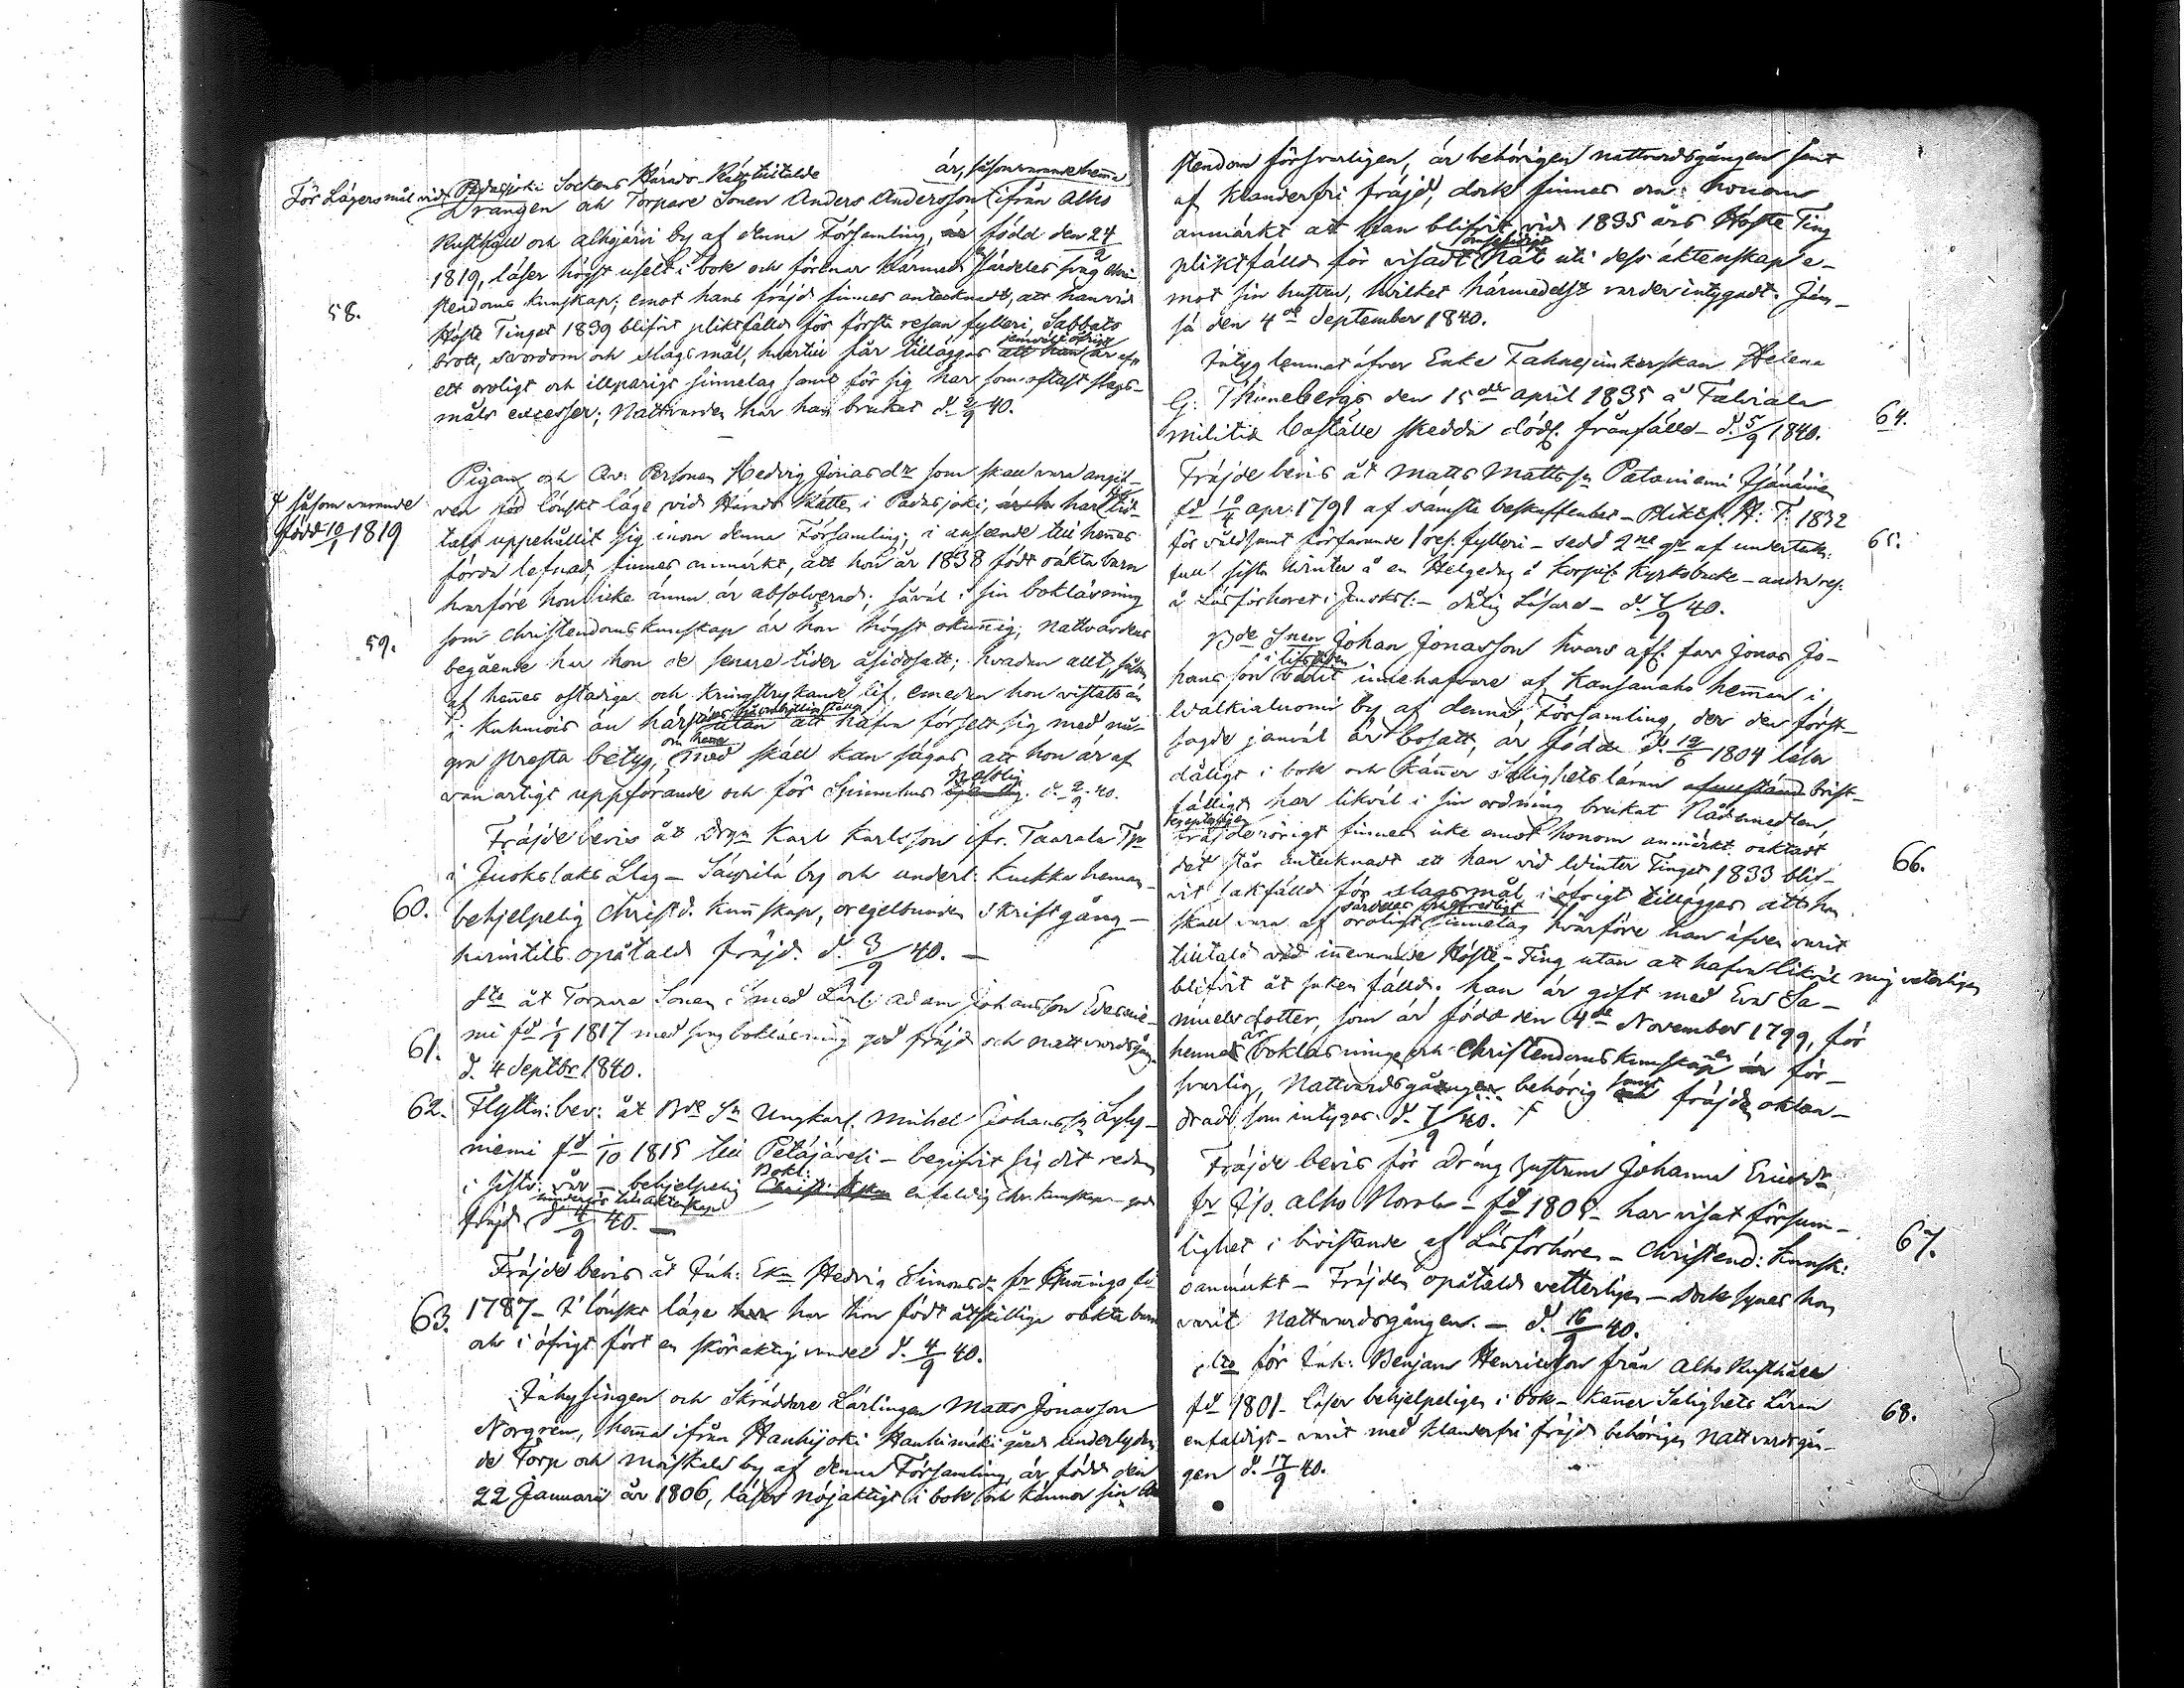 För Lägersmål vid Padasjoki Sockens Härads Rätt tilltalde
är, såsom varande hemma
Drängen och Torpare Sonen Anders Andersson ifrån Alho
Rusthåll och Alhojärvi by af denna Församling, är född den 24/2
1819, läser högst uselt i bok och förenar härmed särdeles svag Chri-
stendoms kunskap; emot hans fräjd finnes antecknadt, att han vid
58.
Höste Tinget 1839 blifvit pliktfälld för första resan fylleri, Sabbats
brott, svordom och slagsmål, hvartill får tilläggas att han är af
ett oroligt och illparigt sinnelag samt för sig har som oftast slags-
måls excesser; Nattvarden har han brukat d. 2/9 40.
Pigan och Qv: Personen Hedvig Jonasdr som skall vara angif-
ven för lönskt läge vid Härads Rätten i Padasjoki, har tid-
såsom varande
född 10/1 1819
tals uppehållit sig inom denna Församling; i anseende till hennes
förda lefnad, finnes anmärkt, att hon år 1838 födt oäkta barn
hvarföre hon icke ännu är absolverad; såväl i sin bokläsning
som Christendomskunskap är hon högst okunnig; Nattvardens
59.
begående har hon de senare tider åsidosatt; hvadan allt,
af hennes ostadiga och kringstrykande lif, emedan hon vistats än
i Kuhmois än här utan att hafva försett sig med nå-
gra Presta betyg, om henne med skäl kan sägas att hon är af
vanartigt uppförande och för Spinnhus d. 2/9 40.
Fräjdebevis åt Drgn Karl Karlsson ifr. Taarala Tp
i Juokslaks Låg - Säyrilä by och underl. Kukka heman -
60.
behjelpelig Christd. kunskap, oregelbunden skriftgång -
härintils opåtald fräjd. d. 3/9 40. -
Dto åt Torpare Sonen Smed Lärl: Adam Johansson
61.
mi fd 1/9 1817 med svag bokläsning god fräjd och nattvardsgång
d. 4 Septbr 1840.
62.
Flyttn: bev: åt Bde Sn Ungkarl Mickel Johansson Lyly-
niemi fd 1/10 1815 till Petäjävesi - begifvit sig dit redan
i sistl. vår - behjelpelig Bokl: enfaldig Chr. kunskap - god
fräjd hinderfri till äktenskap d. 4/9 40. -
Fräjdebevis åt Inh: Eka Hedvig Simonsdr fr
63.
1787 - I lönskt läge har hon födt åtskilliga oäkta barn
och i öfrigt fört en sköraktig vandel d. 4/9 40.
Inhysingen och Skräddare Lärlingen Matts Jonasson
Norgren, hemma ifrån Hauhijoki Hauhimäki gård underlydan-
de Torp och by af denna Församling, är född den
22 Januarii år 1806, läser nöjaktigt i bok och känner sin
stendom försvarligen, är behörigen nattvardsgången samt
af klanderfri fräjd, dock finnes om honom
anmärkt att han blifvit vid 1835 års Höste Ting
pliktfälld för visadt hat uti dess äktenskap e-
mot sin hustru, hvilket härmedelst varder intygadt. Jäm-
sä den 4de September 1840.
Intyg lemnat öfver Enke Fahnejunkerskan Helena
G: Thunebergs den 15de April 1835 å Talviala
64.
militie Boställe skedda dödl. frånfälle - d. 5/9 1840.
Fräjdebevis åt Matts Mattsn Pataniemi
fd 10/4 apr: 1791 af sämsta beskaffenhet - Pliktf. H: T: 1832
65.
för våldsamt förfarande / res: fylleri - sedd 2ne gr af underteckn:
full sista vinter å en Helgedag å Korpil: Kyrkobacke - andra res:
å Läsförhöret i Juoksl: - dålig Läsare - d. 7/9 40.
Bde Snen Johan Jonasson hvars afl. far Jonas Jo-
hansson i lifstiden varit innehafvare af Kansanaho hemman i
Walkialuomi by af denna Församling, der den först-
sagde jemväl är bosatt, är född d. 12/6 1804 läser
dåligt i bok och känner Salighetsläran brist-
fälligt, har likväl i sin ordning brukat Nådemedlen,
Fräjden rörigt finnes icke emot honom anmärkt oaktadt
det står antecknadt att han vid Winter Tinget 1833 blif-
66.
vit sakfälld för slagsmål, i öfrigt tillägges att han
skall vara af oroligt sinnelag hvarföre han äfven varit
tilltald vid innevarande Höste-Ting utan att hafva likväl mig veterligen
blifvit åt saken fälld. Han är gift med Eva Sa-
muelsdotter, som är född den 4de November 1799, för
hennes är bokläsningen och Christendomskunskapen för-
svarlig, Nattvardsgången behörig samt fräjden oklan-
drad, som intygas d. 7/9 40.
Fräjdebevis för Dräng hustrun Johanna Ericsdr
fr Tjo. Alho Norola - fd 1805 - har visat försum-
67.
lighet i bivistande af Läsförhören - Christend: kunsk:
oanmärkt - Fräjden opåtald vetterligen - dock synes hon
varit Nattvardsgången. - d. 16/9 40.
Dto för Inh: Benjam Henricsson från Alho Rusthåll
fd 1801 - läser behjelpeligen i bok - känner Salighets Läran
68.
enfaldigt - varit med klanderfri fräjd behörigen Nattvardsgån-
gen d. 17/9 40.